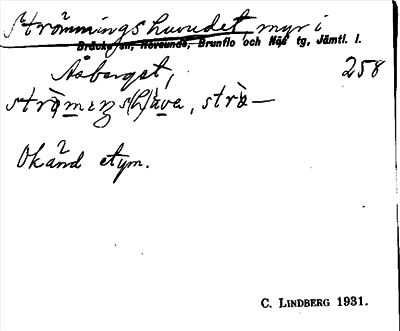 Strömmingshuvudet, myr i
Bräcke, en, Revsunds, Brunflo och Näs tg, Jämtl. l.
Åsbergst, 258
strö̀mɩŋs(h)ùva, strö̀—
Okänd etym.
C. LINDBERG 1931.